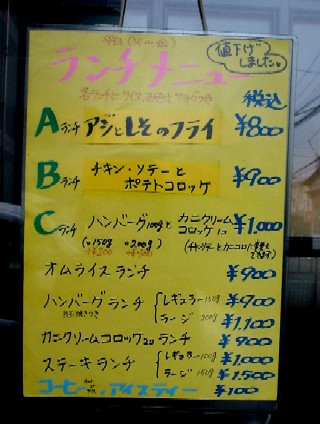 値下げ
しました
ランチメニュー
各ランチに ライス、みそ汁 サラダつき
税込
Aランチ アジとしそのフライ ¥800
Bランチ チキン・ソテーと
ポテトコロッケ ¥900
Cランチ ハンバーグ100gと カニクリーム
コロッケ ¥1,000
(〃150g 〃200g)
オムライスランチ ¥900
ハンバーグランチ レギュラー150g ¥900
ラージ 200g ¥1,100
カニクリームコロッケ2コランチ ¥900
ステーキランチ レギュラー100g ¥1,000
ラージ 150g ¥1,500
コーヒー、アイスティー ¥100